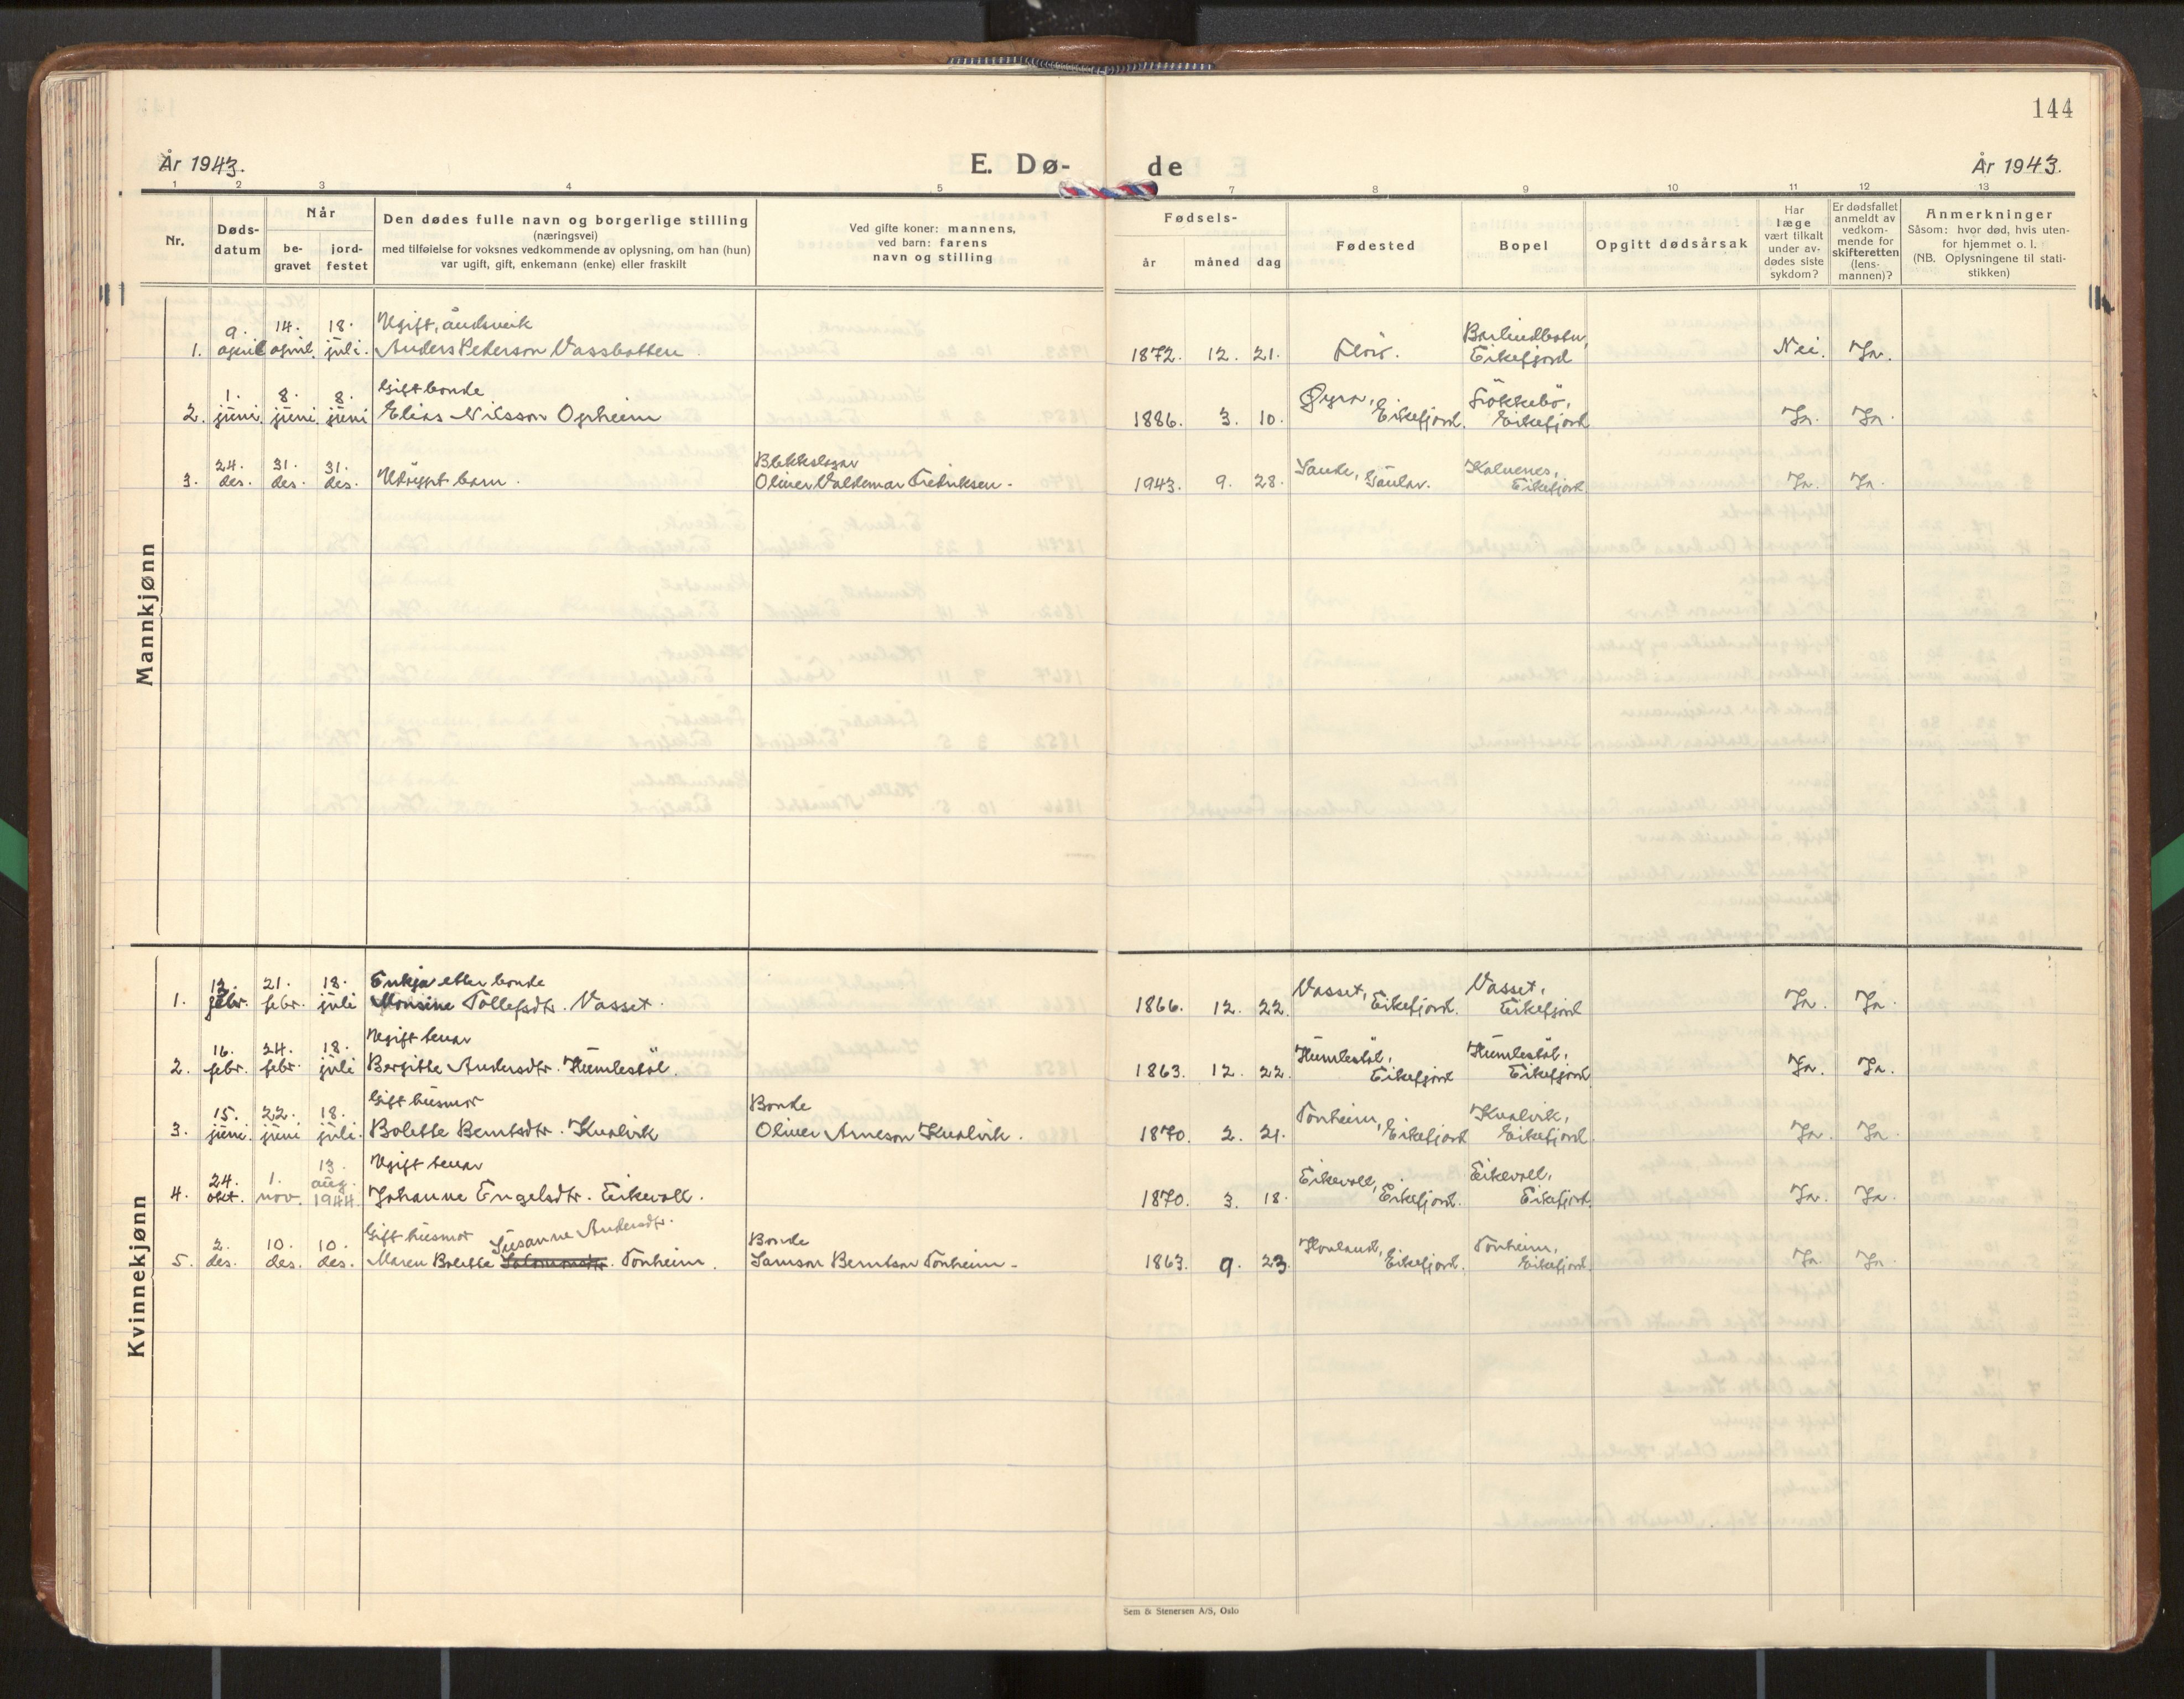 144
År 1943.
E. Dø-
de
År 1943.
1 2 3 4 5 7 8 9 10 11 12 13
Nr.
Døds-
datum
Når
be-
gravet
jord-
festet
Den dødes fulle navn og borgerlige stilling
(næringsvei)
med tilføielse for voksnes vedkommende av oplysning, om han (hun)
var ugift, gift, enkemann (enke) eller fraskilt
Ved gifte koner: mannens,
ved barn: farens
navn og stilling
Fødsels-
år
måned
dag
Fødested
Bopel
Opgitt dødsårsak
Har
læge
vært tilkalt
under av-
dødes siste
sykdom?
Er dødsfallet
anmeldt av
vedkom-
mende for
skifteretten
(lens-
mannen)?
Anmerkninger
Såsom: hvor død, hvis uten-
for hjemmet o. l.
(NB. Oplysningene til stati-
stikken)
Mannkjønn
9. 14. 18. Ugift, åndsveik Barlindbotn,
1. april april. juli. Anders Pederson Vassbotten 1872. 12. 21. Florø. Eikefjord Nei. Ja.
1. 8. 8. Gift bonde Øyra, Løkkebø,
2. juni. juni. juni Elias Nilsson Opheim 1886. 3. 10. Eikefjord. Eikefjord Ja. Ja.
24. 31. 31. Blikkslagar Sande, Kalvenes,
3. des. des. des. Udøypt barn. Oliver Valdemar Fredriksen. 1943. 9. 28. Gaular. Eikefjord Ja. Ja.
Kvinnekjønn
12. 21. 18. Enkja etter bonde Vasset, Vasset,
1. febr. febr. juli Monsine Tollefsdtr. Vasset. 1866. 12. 22. Eikefjord. Eikefjord Ja. Ja.
16. 24. 18. Ugift tenar Humlestøl, Humlestøl,
2. febr. febr. juli Bergitte Andersdtr. Humlestøl. 1863. 12. 22. Eikefjord Eikefjord Ja. Ja.
15. 22. 18. Gift husmor Bonde Tonheim, Kvalvik,
3. juni. juni juli. Bolette Berntsdtr. Kvalvik Oliver Arneson Kvalvik. 1870. 2. 21. Eikefjord Eikefjord. Ja. Ja.
24. 1. 13. aug. Ugift tenar Eikevoll, Eikevoll,
4. okt. nov. 1944. Johanne Engelsdtr. Eikevoll. 1870. 3. 18. Eikefjord. Eikefjord. Ja. Ja.
2. 10. 10. Gift husmor Susanne Andersdtr. Bonde Hovland, Tonheim,
5. des. des. des. Maren Bolette Salomonsdtr. Tonheim. Samson Berntson Tonheim. 1863. 9. 23. Eikefjord. Eikefjord. Ja. Ja.
Sem & Stenersen A/S, Oslo